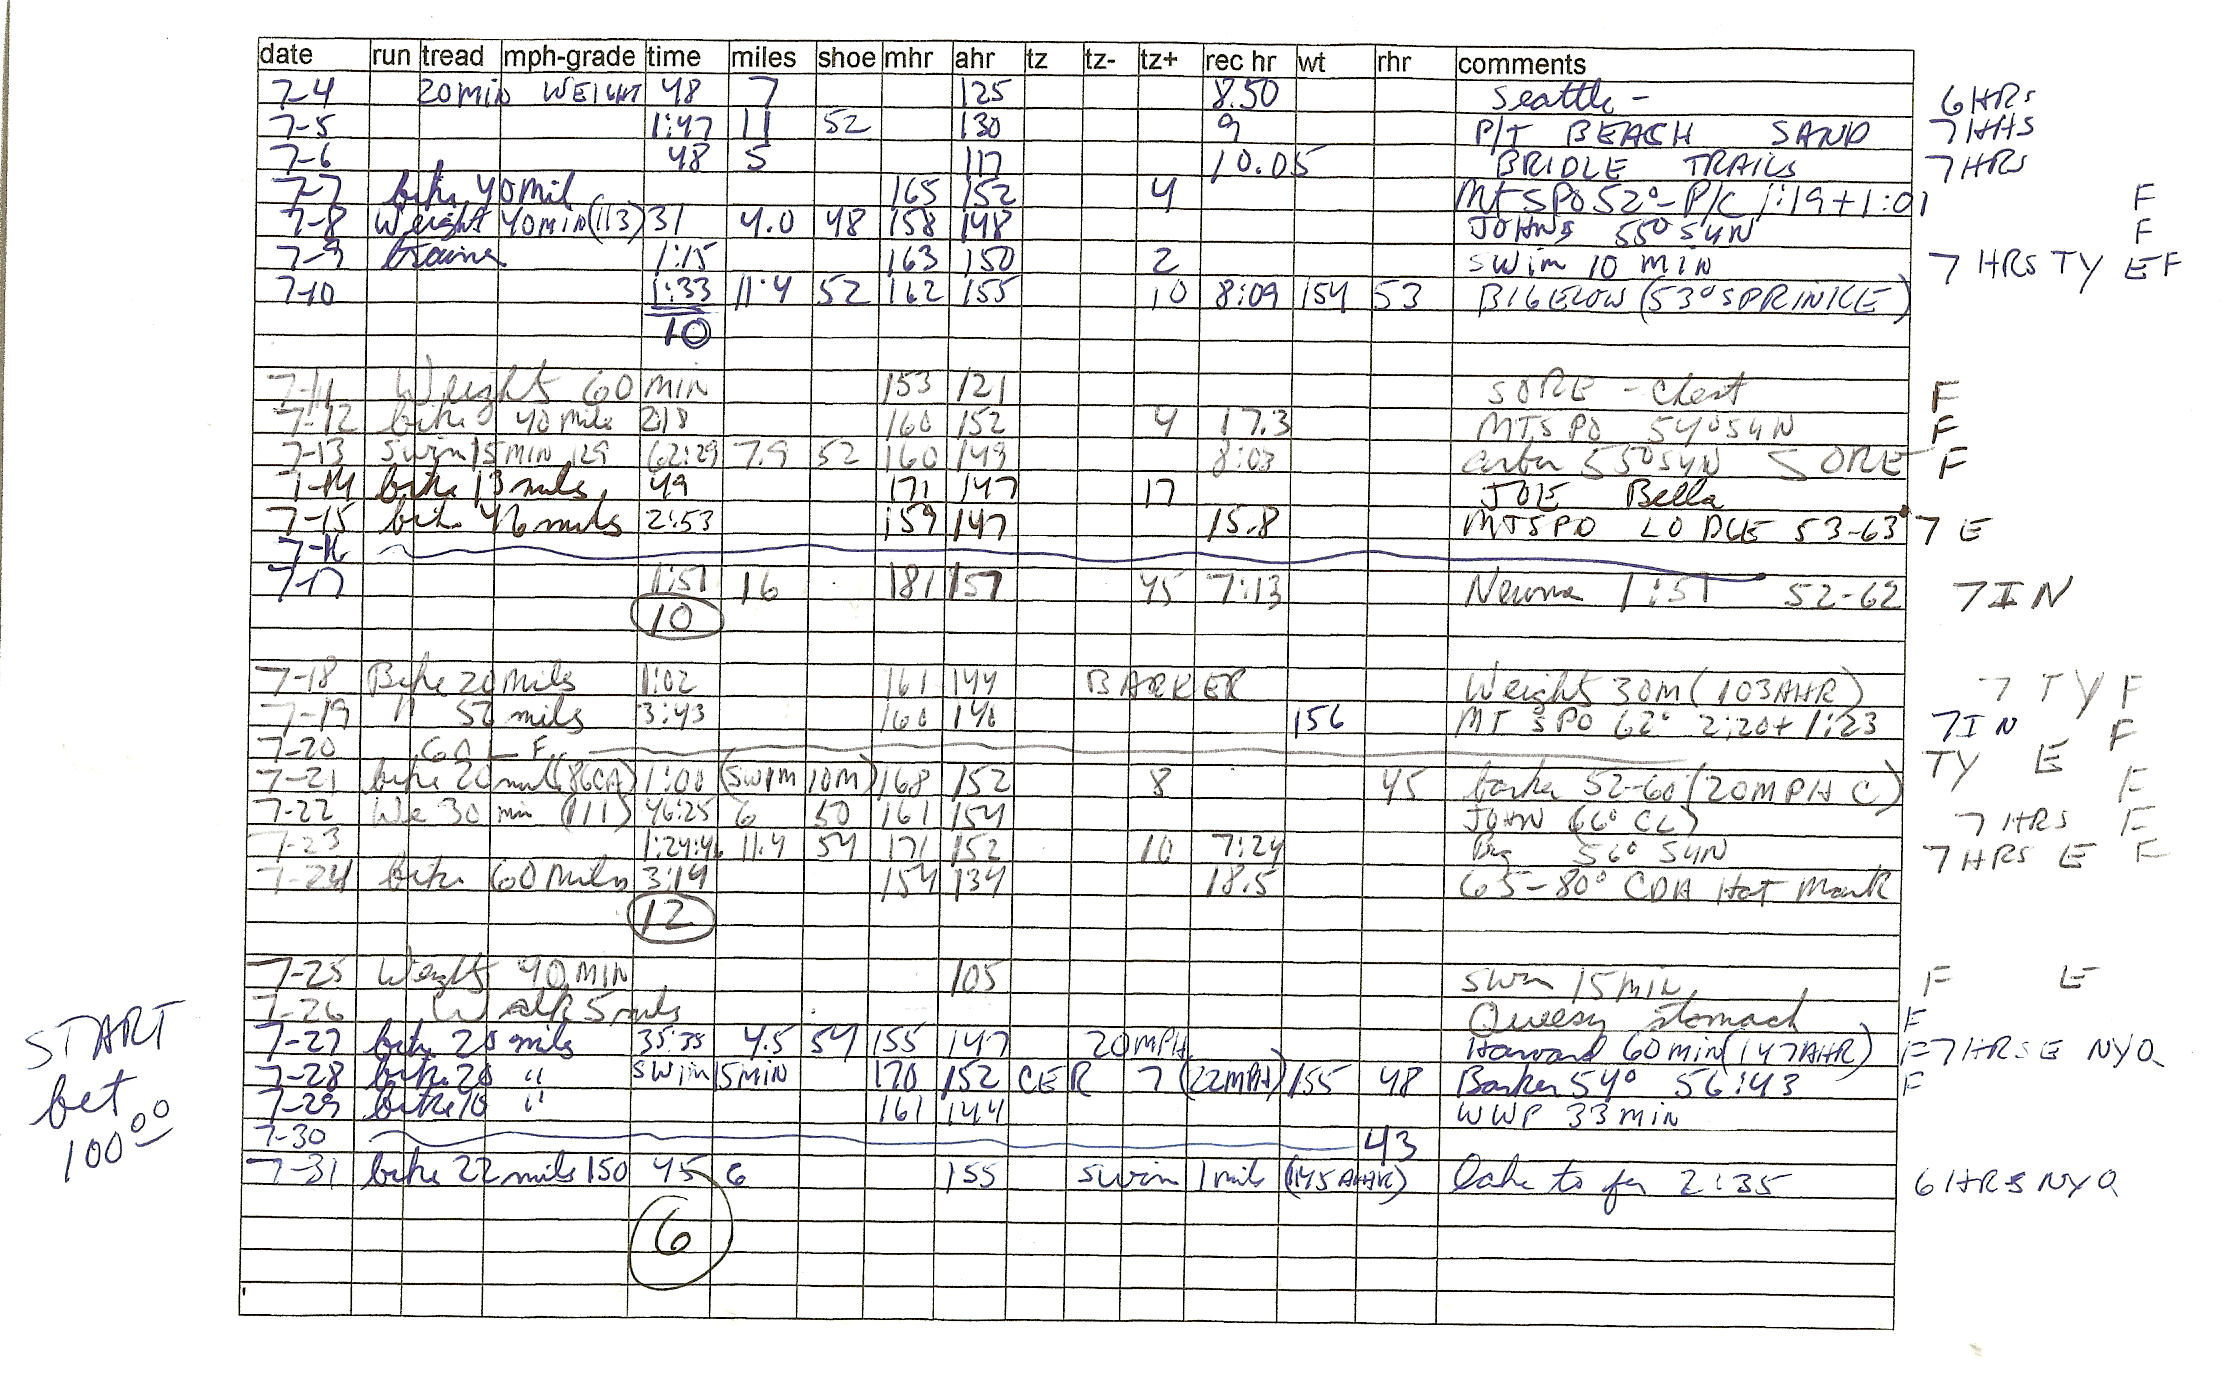 date run tread mph-grade time miles shoe mhr ahr tz tz- tz+ rec hr wt rhr comments
7-4 20 min WEIGHT 48 7 125 8.50 Seattle - 6 HRS
7-5 1:47 11 52 130 9 P/T BEACH SAND 7 HRS
7-6 48 5 117 10.05 BRIDLE TRAILS 7 HRS
7-7 bike 40 mil 165 152 4 MT SPO 52° - P/C 1:19 + 1:01 F
7-8 Weight 40 min (113) 31 4.0 48 158 148 JOHNS 55° SUN F
7-9 1:15 163 150 2 swim 10 MIN 7 HRS TY EF
7-10 1:33 11.4 52 162 155 10 8:09 154 53 BIGELOW (53° SPRINKLE)
10
7-11 Weight 60 MIN 153 121 SORE - Chest F
7-12 bike 40 mile 2:18 160 152 4 17.3 MT SPO 54° SUN F
7-13 Swim 15 MIN 129 62:29 7.9 52 160 149 8:03 55° SUN SORE F
7-14 bike 13 mils 49 171 147 17 JOE Bella
7-15 bike 46 mils 2:53 159 147 15.8 MT SPO LODGE 53-63 7 E
7-16
7-17 1:51 16 181 157 45 7:13 1:51 52-62 7 IN
10
7-18 Bike 20 mils 1:02 161 144 BARKER Weight 30 M (103 AHR) 7 TY F
7-19 " 52 mils 3:43 160 140 156 MT SPO 62° 2:20 + 1:23 7 IN F
7-20 GOLF TY E
7-21 bike 20 mil (86CA) 1:00 (SWIM 10M) 168 152 8 45 barker 52-60 (20 MPH C) F
7-22 We 30 min (111) 46:25 6 50 161 154 JOHN (66° CL) 7 HRS F
7-23 1:24:46 11.4 54 171 152 10 7:24 Big 56° SUN 7 HRS E F
7-24 bike 60 miles 3:14 154 134 18.5 65-80° CDA Hot Mark
12
7-25 Weight 40 MIN 105 swim 15 min F E
7-26 Walk 5 mils Queesy stomach F
7-27 bike 20 mils 35:35 4.5 54 155 147 20 MPH Harvard 60 min (147 AHR) F 7 HRS E NYQ
7-28 bike 20 " swim 15 MIN 170 152 CER 7 (22 MPH) 155 48 Barker 54° 56:43 F
7-29 bike 10 " 161 144 WWP 33 min
7-30 43
7-31 bike 22 mils 150 45 6 155 swim 1 mile (145 AHR) lake to 2:35 6 HRS NYQ
6
START
bet
100.00